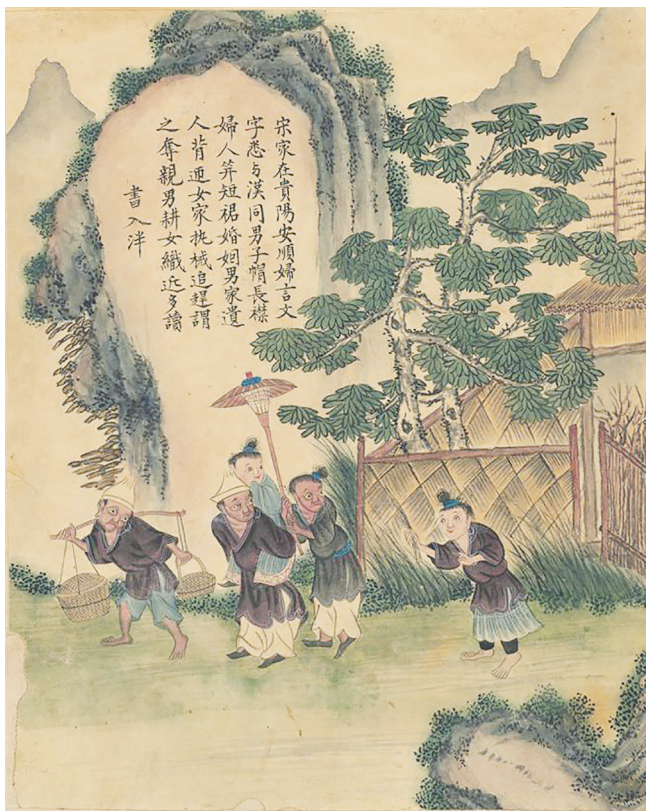 宋家在貴陽安順婦言文
字悉与漢同男子帽長襟
婦人笄短裙婚姻男家遺
人背逥女家執械追趕謂
之奪親男耕女織近多讀
書入泮